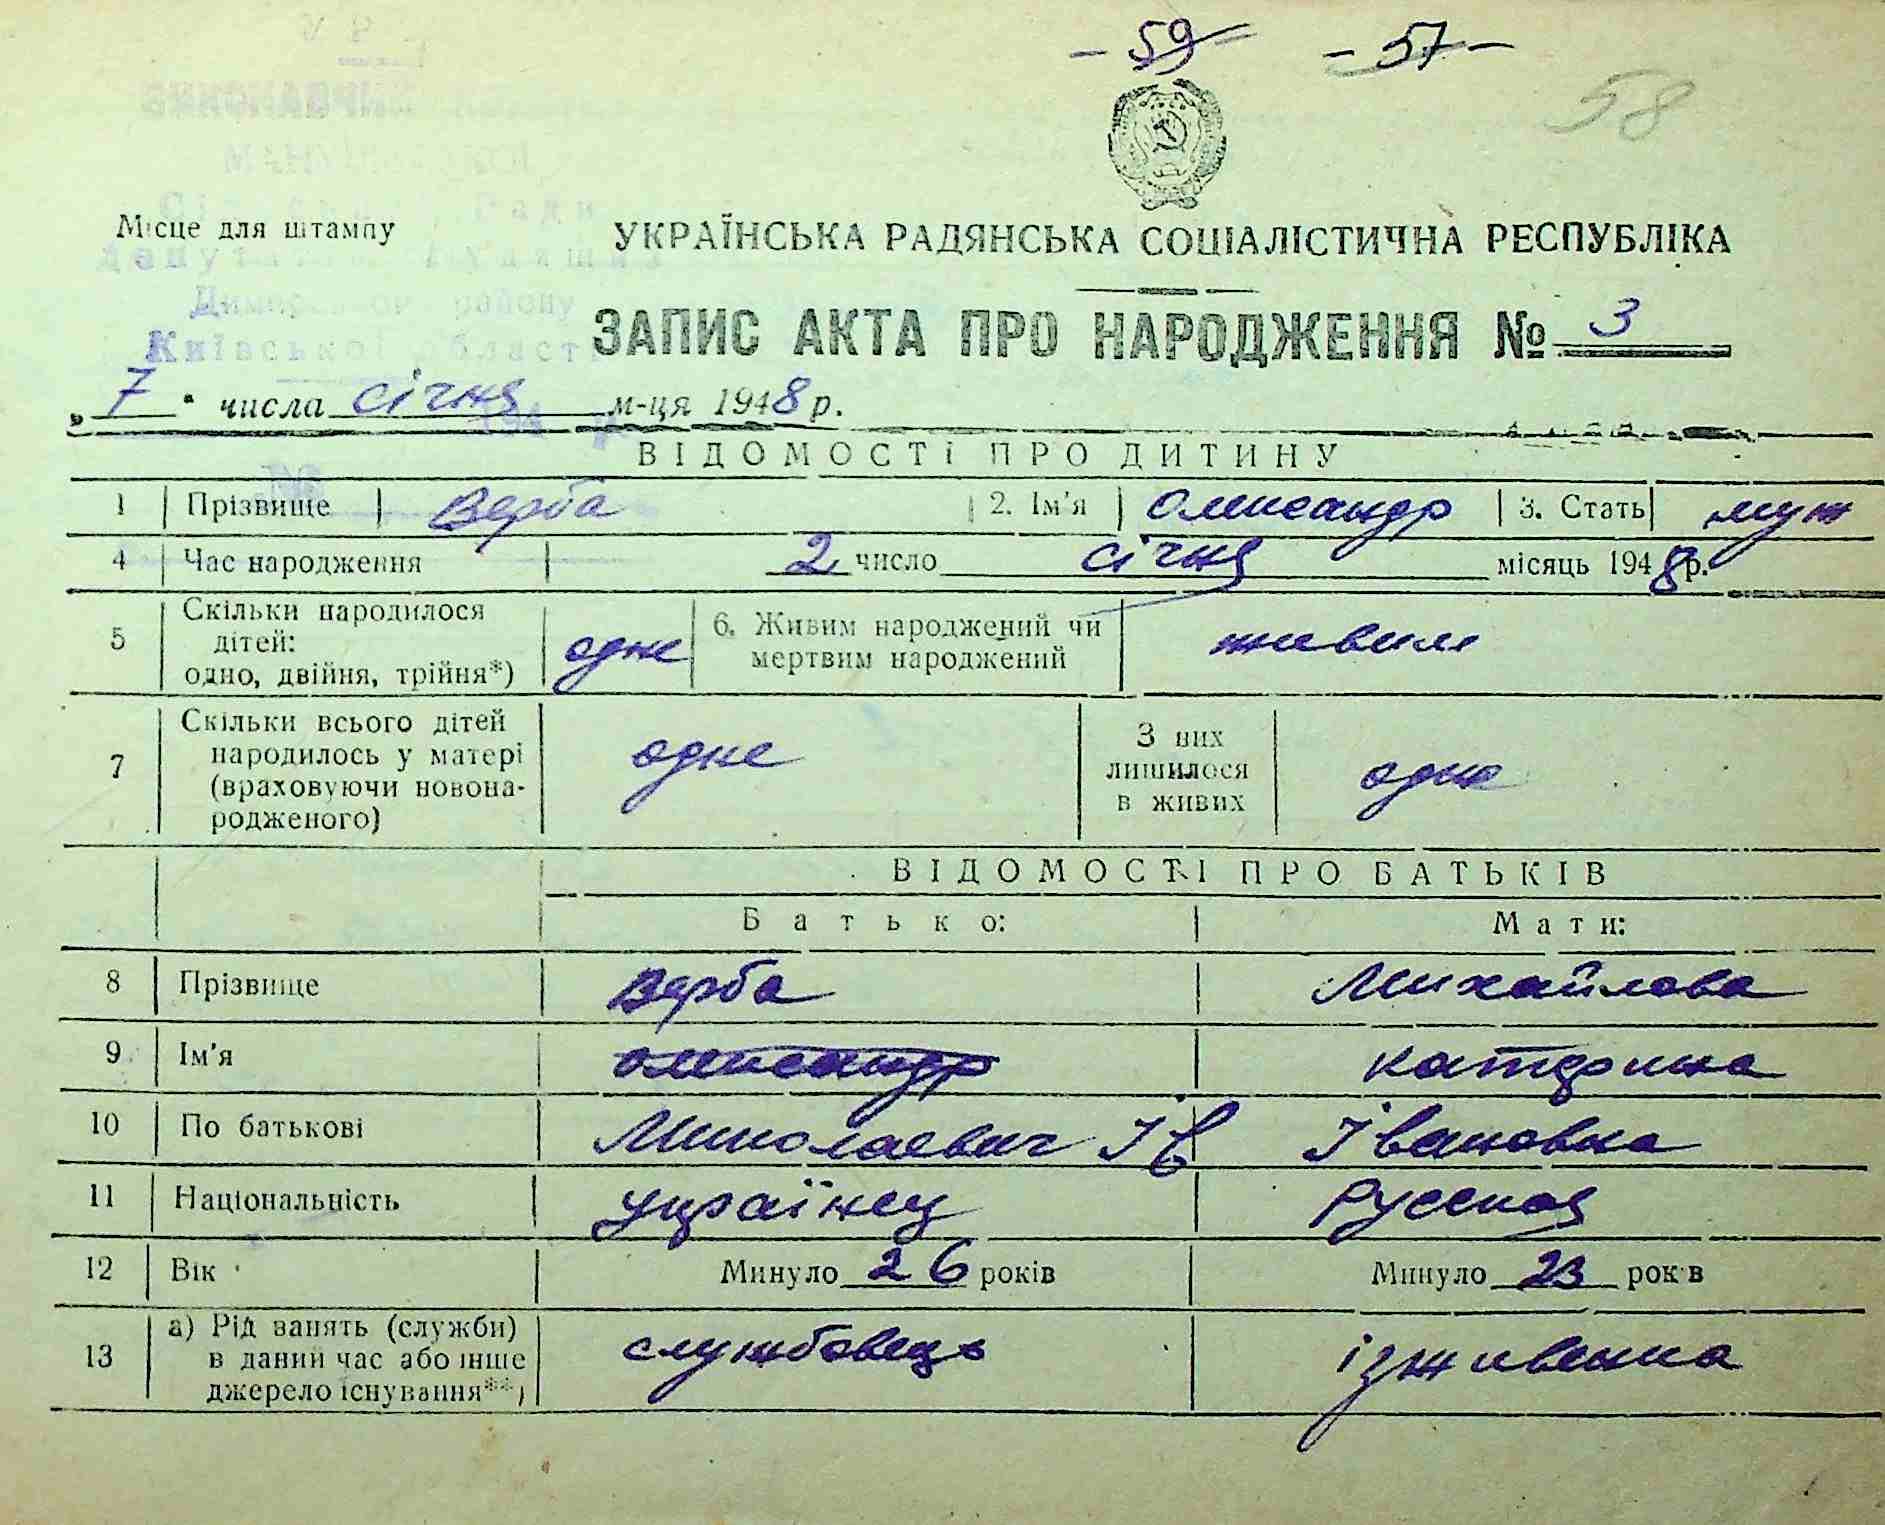 - 59 - - 57 -
58
Місце для штампу
УКРАЇНСЬКА РАДЯНСЬКА СОЦІАЛІСТИЧНА РЕСПУБЛІКА
ЗАПИС АКТА ПРО НАРОДЖЕННЯ № 3
Київської області
„ 7 " числа січня м-ця 1948 р.
ВІДОМОСТІ ПРО ДИТИНУ
1 Прізвище Верба 2. Ім'я Олександр 3. Стать муж
4 Час народження 2 число січня місяць 1948 р.
5 Скільки народилося дітей: одно, двійня, трійня*) одне 6. Живим народжений чи мертвим народжений живим
7 Скільки всього дітей народилось у матері (враховуючи новонародженого) одне З них лишилося в живих одне
ВІДОМОСТІ ПРО БАТЬКІВ
Батько: Мати:
8 Прізвище Верба Михайлова
9 Ім'я Олександр Катерина
10 По батькові Миколаевич Ів Івановна
11 Національність українец Русская
12 Вік Минуло 26 років Минуло 23 років
13 а) Рід занять (служби) в даний час або інше джерело існування**) службовець іждивенка